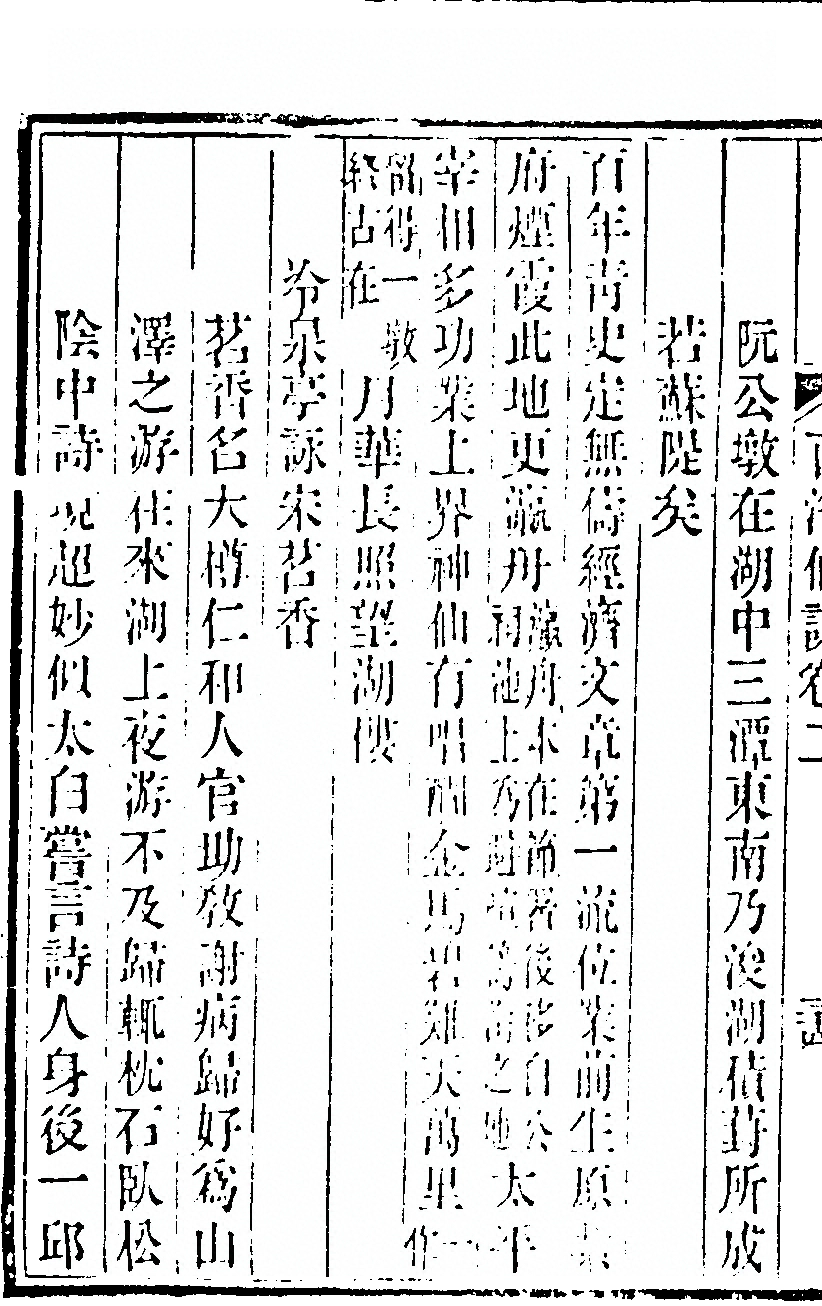 卷二
阮公墩在湖中三潭東南乃浚湖積葑所成
若蘇隄矣
百年靑史定無儔經濟文章第一流位業前生原
府煙霞此地更瀛舟瀛舟本在節署後移白公祠池上之地太平
宰相多功業上界神仙有唱酬金馬碧雞天萬里一作
留得一墩終古在月華長照望湖樓
冷泉亭詠宋茗香
茗香名大樽仁和人官助敎謝病歸好爲山
澤之游往來湖上夜游不及歸輒枕石臥松
陰中詩境超妙似太白嘗言詩人身後一邱